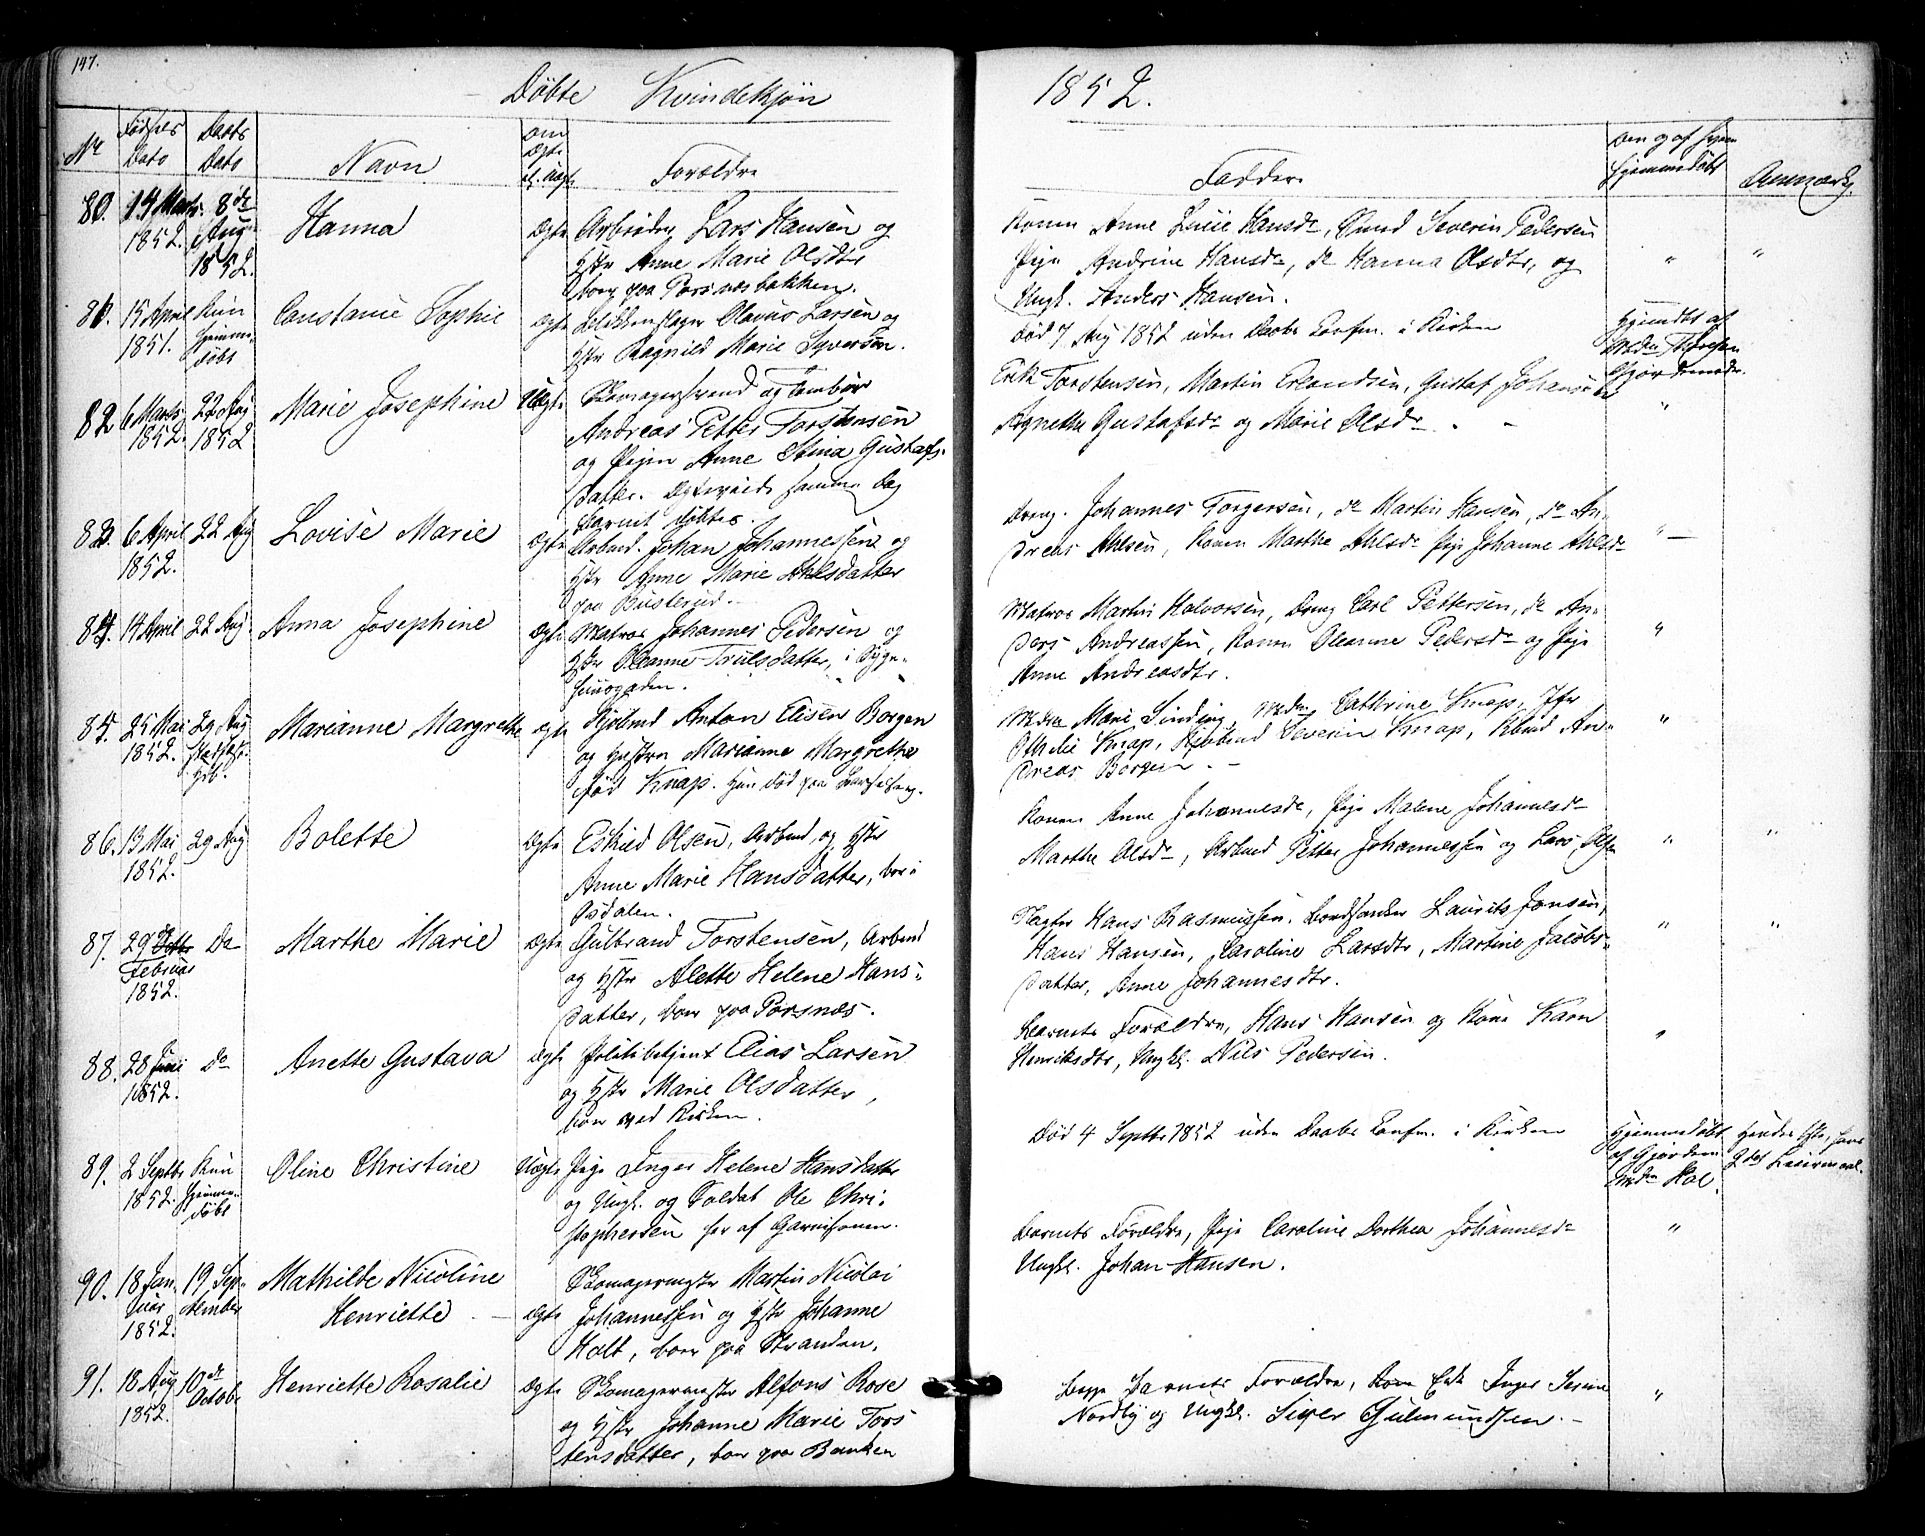 147.
Döbte Kvindekjön 1852.
No Födsels Dato Daabs Dato Navn om Ægte el. Uægte Forældre Faddere Anmærk.
80. 14 Marts 1852. 8de Aug 1852. Hanna Ægte Arbeidsm Lars Hansen og
Hstr Anne Marie Olsdtr
boer paa Porsnæsbakken.
Konen Anne Lucie Hansdr, Svend Severin Pedersen
Pige Andrine Hansdr, do Hanna Olsdtr, og
Ungk. Anders Hansen. " "
81. 15 April 1851. Kun hjemmedöbt Constance Sophie Ægte Blikkenslager Olavus Larsen og
Hstr Ragnild Marie Syversen.
död 7 Aug 1852 uden Daabs Confm. i Kirken
82 6 Marts 1852. 22 Aug 1852 Marie Josephine Uægte Skomagersvend og Tambur
Andreas Petter Torstensen
og Pigen Anne Stina Gustafs-
datter. Ægteviede samme Dag
Barnet döbtes.
Erik Torstensen, Martin Erlandsen, Gustaf Johansen
Agnethe Gustafsdr og Marie Olsdr "
83. 6 April 1852. 22 Aug Lovise Marie Ægte Arbmd. Johan Johannessen og
Hstr Anne Marie Ahlsdatter
paa Busterud.
Dreng. Johannes Torgersen, do Martin Hansen, do An-
dreas Ahlsen, Konen Marthe Ahlsdr Pige Johanne Ahlsdr "
84. 14 April 22 Aug Anna Josephine Ægte Matros Johannes Pedersen og
Hstr Oleanne Trulsdatter, i Syge-
huusgaden.
Matros Martin Halvorsen, Dreng Carl Pettersen, do An-
ders Andreassen, Konen Oleanne Pedersdr og Pige
Anne Andreasdtr. "
85. 25 Mai 1852. 29 Aug Marianne Margrethe Ægte Kjöbmd Anton Elisen Borgen
og Hustru Marianne Margrethe
föd Knap. Hun död paa Barselseng.
Mdm Marie Sinding, Mdm Cathrine Knap, Jfr
Othilie Knap, Kjöbmd Severin Knap, Kbmd An-
dreas Borgen. "
86. 13 Mai 1852. 29 Aug Bolette Ægte Eskild Olsen, Arbmd, og Hstr
Anne Marie Hansdatter, boer i
Osdalen.
Konen Anne Johannesdr, Pige Malene Johannesdr
Marthe Olsdr, Arbmd Petter Johannessen og Lars Olsen " "
87. 29 Februar 1852. Do Marthe Marie Ægte Gulbrand Torstensen, Arbmd
og Hstr Alette Helene Hans-
datter, boer paa Porsnæs.
Slagter Hans Rasmussen. Laurits Jonsen,
Hans Hansen, Karoline Larsdtr, Martine Jacobs-
datter, Anne Johannesdtr. " "
88. 28 Juni 1852. Do Anette Gustava Ægte Politibetjent Elias Larsen
og Hstr Marie Olsdatter,
boer ved Kirken.
Barnets Forældre, Hans Hansen og Kone Karn
Henriksdtr, Ungk. Nils Pedersen. "
89. 2 Septbr 1852. Kun hjemmedöbt Oline Christine Uægte Pige Inger Helene Hansdatter
og Ungk. og Soldat Ole Chri-
stophersen her af Garnisonen.
Död 4 Septbr 1852 uden Daabs Confm. i Kirken
Hjemmedöbt af Gjordem Mdm Hol. Hendes 2det Leiermaal.
90. 18 Januar 1852. 19 September Mathilde Nicoline
Henriette Ægte Skomagermester Martin Nicolai
Johannessen og Hstr Johanne
Holt, boer paa Stranden.
Barnets Forældre, Pige Caroline Dorthea Johannesdr
Ungk. Johan Hansen. "
91. 18 Aug 1852. 10de Octobr Henriette Rosalie Ægte Skomagermester Alfons Rose
og Hstr Johanne Marie Tors
tensdatter, boer paa Banken
Begge Barnets Forældre, Enk Inger Serine
Nordby og Ungk. Siver Gulmundsen. "